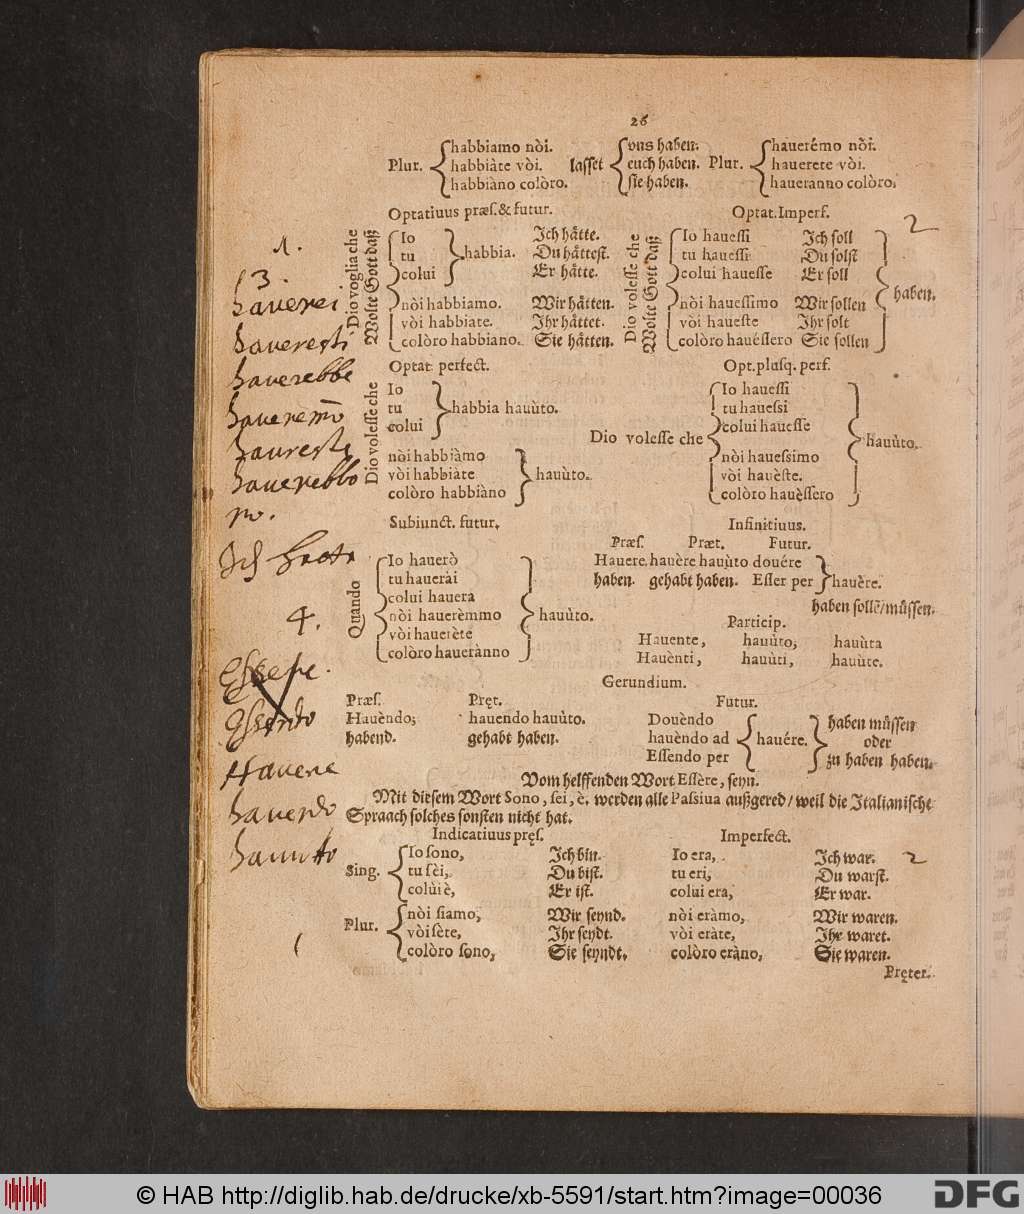 26
Plur. habbiamo nòi. lasset vns haben. Plur. hauerémo nòi.
habbiàte vòi. euch haben. hauerete vòi.
habbiàno colòro. sie haben. haueranno colòro.
Optatiuus præs. & futur. Optat. Imperf.
2
1.
Dio voglia che
Wolte Gott daß
Io habbia. Ich hätte.
tu Du hättest.
colui Er hätte.
nòi habbiamo. Wir hätten.
vòi habbiate. Ihr hättet.
colòro habbiano. Sie hätten.
Dio volesse che
Wolte Gott daß
Io hauessi Ich soll haben.
tu hauessi Du solst
colui hauesse Er soll
nòi hauessimo Wir sollen
vòi haueste Ihr solt
colòro hauéssero Sie sollen
3.
haverei
haveresti
haverebbe
haveremo
havreste
haverebbo
no.
Optat. perfect. Opt. plusq. perf.
Dio volesse che
Io habbia hauùto.
tu
colui
nòi habbiàmo hauùto.
vòi habbiàte
colòro habbiàno
Dio volesse che
Io hauessi hauùto.
tu hauessi
colui hauesse
nòi hauessimo
vòi hauèste.
colòro hauèssero
Subiunct. futur. Infinitiuus.
Quando
Io hauerò hauùto.
tu hauerài
colui hauera
nòi hauerèmmo
vòi hauerète
colòro haueránno
Præs. Præt. Futur.
Hauere. hauère hauùto douére hauère.
haben. gehabt haben. Esser per
haben sollē/müssen.
Particip.
Hauente, hauùto, hauùta
Hauènti, hauùti, hauùte.
4.
Essere.
Essendo
Havere
havendo
havuto
Gerundium.
Præs. Pręt. Futur.
Hauèndo; hauendo hauùto. Douèndo hauére. haben müssen
habend. gehabt haben. hauèndo ad oder
Essendo per zu haben haben.
Vom helffenden Wort Essère, seyn.
Mit diesem Wort Sono, sei, è, werden alle Passiua außgered/ weil die Italianische
Spraach solches sonsten nicht hat.
Indicatiuus pręs. Imperfect.
Sing. Io sono, Ich bin. Io era, Ich war. 2
tu sèi, Du bist. tu eri, Du warst.
colùi è, Er ist. colui era, Er war.
Plur. nòi siamo, Wir seynd. nòi eràmo, Wir waren.
vòi sète, Ihr seydt. vòi eràte, Ihr waret.
colòro sono, Sie seyndt. colòro eràno, Sie waren.
Pręter.
© HAB http://diglib.hab.de/drucke/xb-5591/start.htm?image=00036
DFG